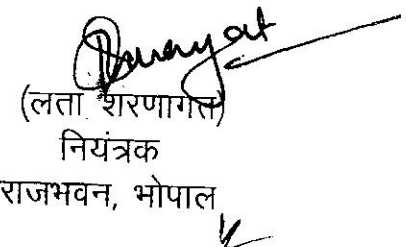 (लता शरणागत)
नियंत्रक
राजभवन, भोपाल